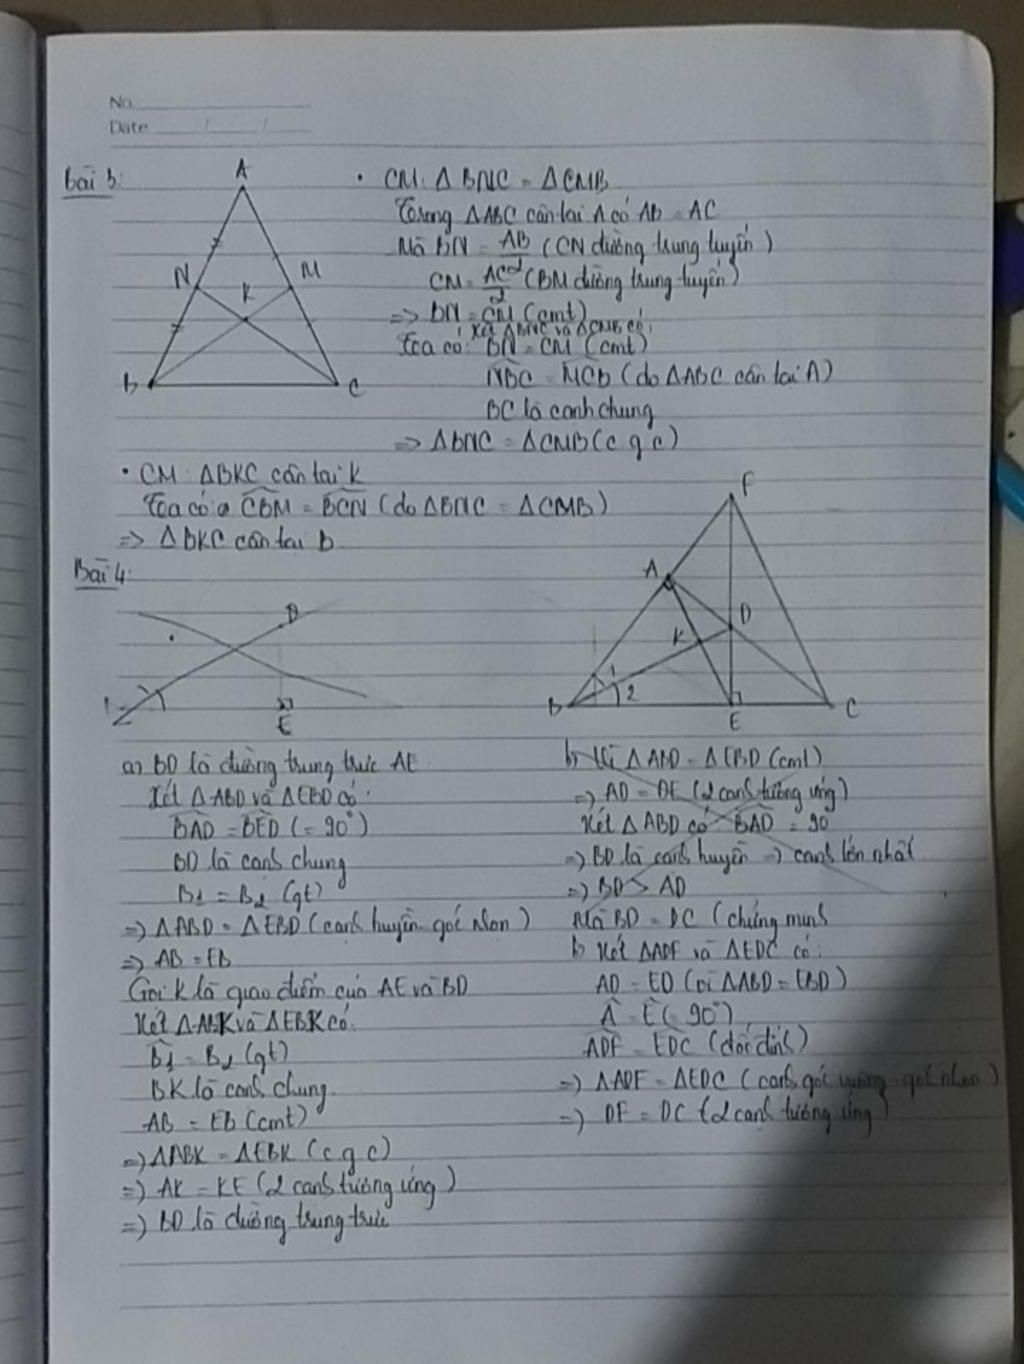 No.
Date / /
Bài 3:
A
N
M
K
B
C
• CM: Δ BNC = ΔCMB
Trong ΔABC cân tại A có AB = AC
Mà BN = AB/2 (CN đường trung tuyến)
CM = AC/2 (BM đường trung tuyến)
=> BN = CM (cmt)
Xét ΔBNC và ΔCMB có:
Ta có: BN = CM (cmt)
NBC = MCB (do ΔABC cân tại A)
BC là cạnh chung
=> ΔBNC = ΔCMB (c g c)
• CM: ΔBKC cân tại K
Ta có: CBM = BCN (do ΔBNC = ΔCMB)
=> ΔBKC cân tại B
Bài 4:
D
E
F
A
D
K
1
2
B
E
C
a) BD là đường trung trực AE
Xét ΔABD và ΔEBD có:
BAD = BED (= 90°)
BD là cạnh chung
B1 = B2 (gt)
=> ΔABD = ΔEBD (cạnh huyền góc nhọn)
=> AB = EB
Gọi K là giao điểm của AE và BD
Xét ΔABK và ΔEBK có:
B1 = B2 (gt)
BK là cạnh chung.
AB = EB (cmt)
=> ΔABK = ΔEBK (c g c)
=> AK = KE (2 cạnh tương ứng)
=> BD là đường trung trực
b) Vì ΔABD = ΔEBD (cmt)
=> AD = DE (2 cạnh tương ứng)
Xét ΔABD có: BAD = 90°
=> BD là cạnh huyền => cạnh lớn nhất
=> BD > AD
Mà BD = DC (chứng minh
b) Xét ΔADF và ΔEDC có:
AD = ED (vì ΔABD = EBD)
A = E (= 90°)
ADF = EDC (đối đỉnh)
=> ΔADF = ΔEDC (cạnh góc vuông - góc nhọn)
=> DF = DC (2 cạnh tương ứng)